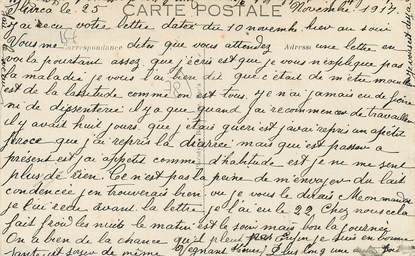 CARTE POSTALE
le 25 Novembre 1917
J'ai recu votre lettre datée du 10 novemb. hier au soir
Vous me dites que vous attendez une lettre en
Correspondance Adresse
voila pourtant assez que j'écris est que je vous n'explique pas
la maladie je vous l'ai bien dit que c'était de m'être mouillé
est de la lasitude comme on est tous. J'en ai jamais eu de fièvre
ni de dissenterie il y a que quand j'ai recommencé de travailler
il y avait huit jours que j'étais gueri est j'avai repris un apetit
féroce que j'ai repris la diarrée mais que est passer a
présent est j'ai appetit comme d'habitude est je ne me sent
plus de rien Ce n'est pas la peine de m'envoyer du lait
condencée j'en trouverais bien vu je vous le dirais
je l'ai recu avant la lettre je l'ai eu le 22 Chez nous cela
fait froid les nuits le matin est le soir mais bon la journée
On a bien de la chance qu'il pleut pas Enfin je suis en bonne
Santé est Plus long une